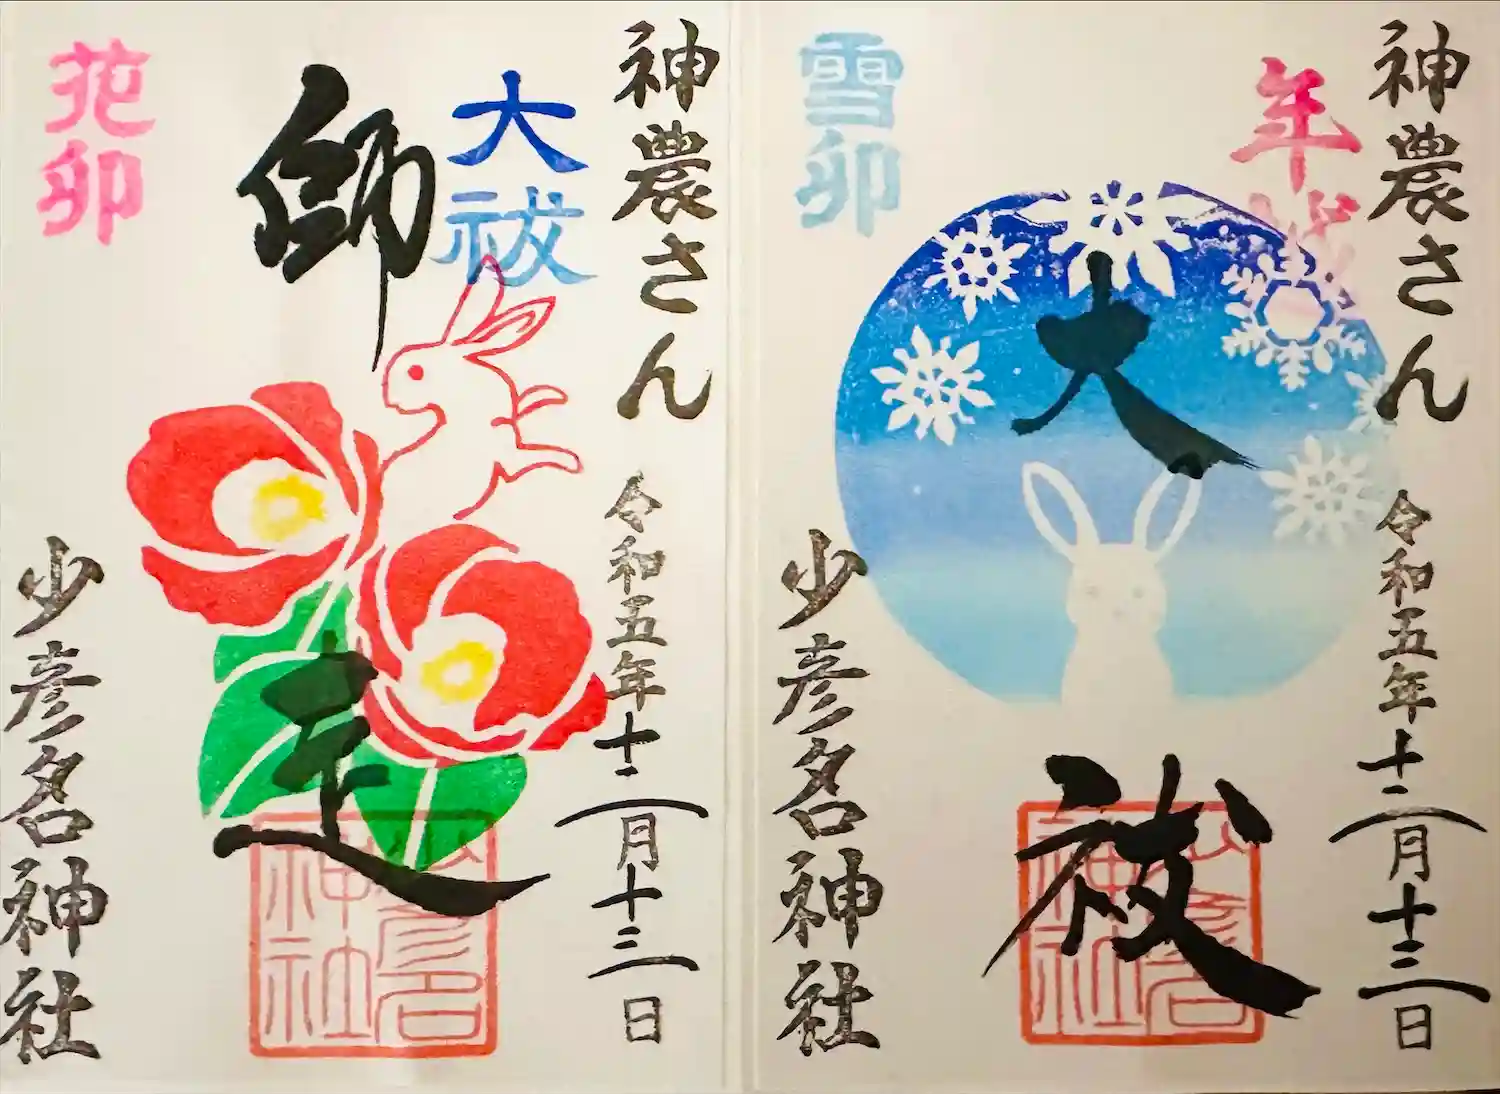 神農さん
令和五年十二月十三日
年越
大祓
雪卯
少彦名神社
少彦名神社
神農さん
令和五年十二月十三日
大祓
師走
花卯
少彦名神社
少彦名神社